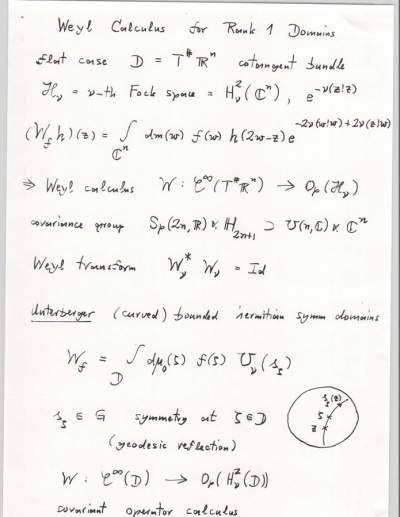 Weyl Calculus for Rank 1 Domains
flat case D = T# ℝⁿ cotangent bundle
ℋ_ν = ν-th Fock space = H²_ν(ℂⁿ), e^{-ν(z|z)}
(W_f h)(z) = ∫_{ℂⁿ} dm(w) f(w) h(2w-z) e^{-2ν(w|w)+2ν(z|w)}
⇒ Weyl calculus W : 𝒞^∞(T#ℝⁿ) → Op(ℋ_ν)
covariance group Sp(2n,ℝ) ⋉ ℍ_{2n+1} ⊃ U(n,ℂ) ⋉ ℂⁿ
Weyl transform W*_ν W_ν = Id
Unterberger (curved) bounded hermitian symm domains
W_f = ∫_D dμ₀(ζ) f(ζ) U_ν(s_ζ)
s_ζ(z)
ζ
z
s_ζ ∈ G symmetry at ζ ∈ D
(geodesic reflection)
W : 𝒞^∞(D) → Op(H²_ν(D))
covariant operator calculus